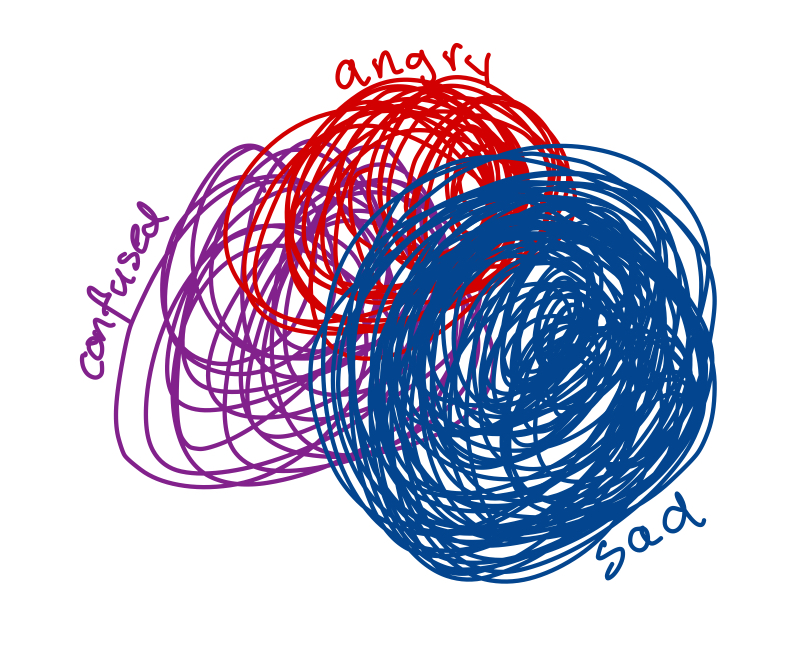 angry
confused
sad